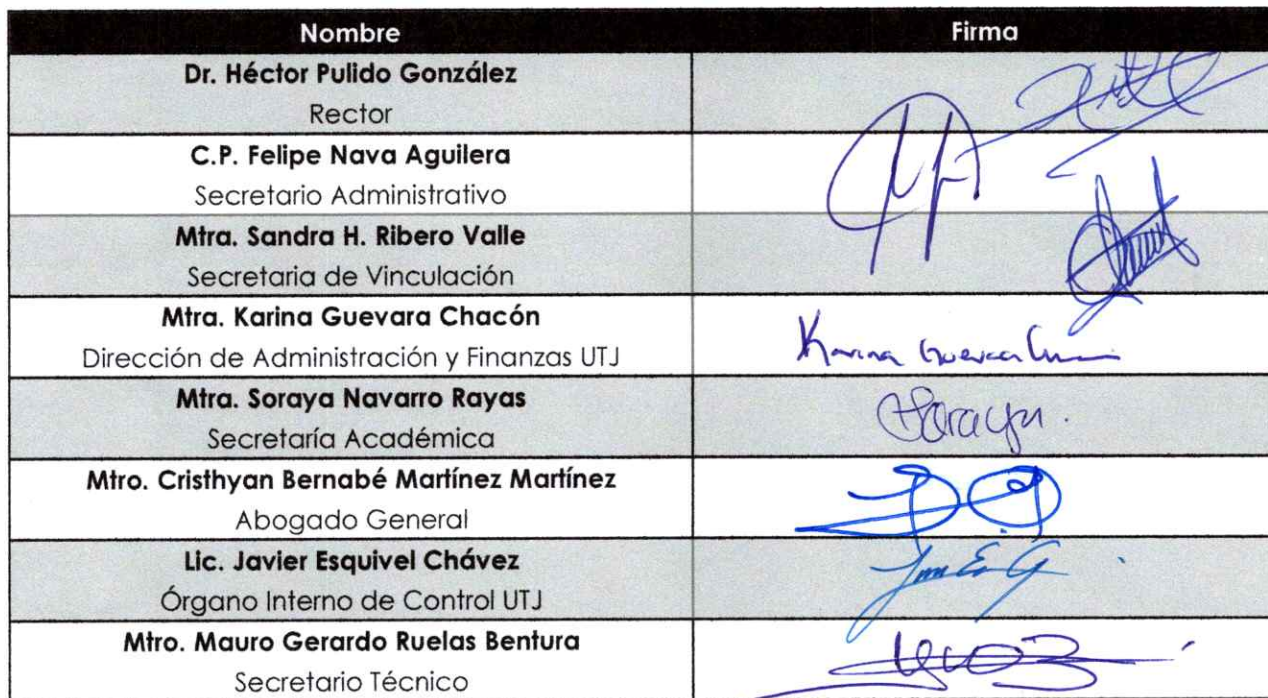 Nombre Firma
Dr. Héctor Pulido González
Rector
C.P. Felipe Nava Aguilera
Secretario Administrativo
Mtra. Sandra H. Ribero Valle
Secretaria de Vinculación
Mtra. Karina Guevara Chacón
Dirección de Administración y Finanzas UTJ
Karina Guevara
Mtra. Soraya Navarro Rayas
Secretaría Académica
Soraya.
Mtro. Cristhyan Bernabé Martínez Martínez
Abogado General
Lic. Javier Esquivel Chávez
Órgano Interno de Control UTJ
Mtro. Mauro Gerardo Ruelas Bentura
Secretario Técnico